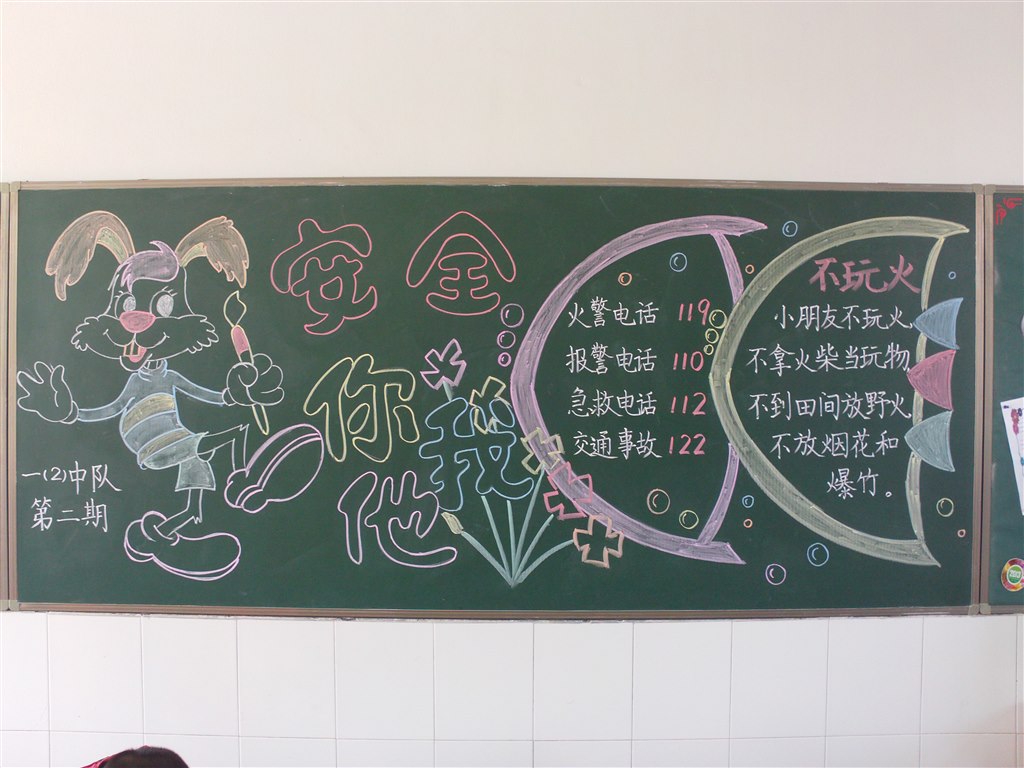 安全
你我他
一(2)中队
第二期
火警电话 119
报警电话 110
急救电话 112
交通事故 122
不玩火
小朋友不玩火
不拿火柴当玩物
不到田间放野火
不放烟花和
爆竹。
2013